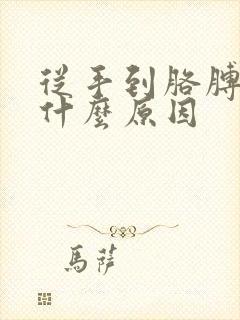 從手到胳膊
什麼原因
馬薩